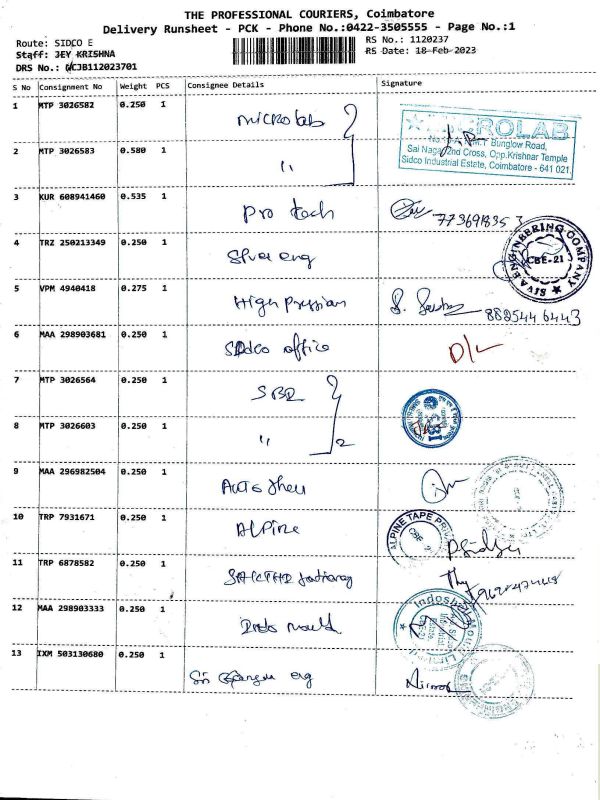 THE PROFESSIONAL COURIERS, Coimbatore
Delivery Runsheet - PCK - Phone No.:0422-3505555 - Page No.:1
Route: SIDCO E
RS No.: 1120237
Staff: JEY KRISHNA
RS Date: 18-Feb-2023
DRS No.: GCJB112023701
S No Consignment No Weight PCS Consignee Details Signature
1 MTP 3026582 0.250 1 microlab
MICROLAB
Bunglow Road,
Sai Nagar 2nd Cross, Opp.Krishnar Temple
Sidco Industrial Estate, Coimbatore - 641 021.
2 MTP 3026583 0.580 1 "
3 KUR 608941460 0.535 1 Pro tech
4 TRZ 250213349 0.250 1 eng
SIVA ENGINEERING COMPANY
CBE-21
5 VPM 4940418 0.275 1 High 8825446443
6 MAA 298903681 0.250 1 Sidco office D/L
7 MTP 3026564 0.250 1 SBI
8 MTP 3026603 0.250 1 " 2
9 MAA 296982504 0.250 1 Auto
10 TRP 7931671 0.250 1 Alpine
ALPINE TAPE
11 TRP 6878582 0.250 1
12 MAA 298903333 0.250 1 Indo mould
13 IXM 503130680 0.250 1 Sri eng